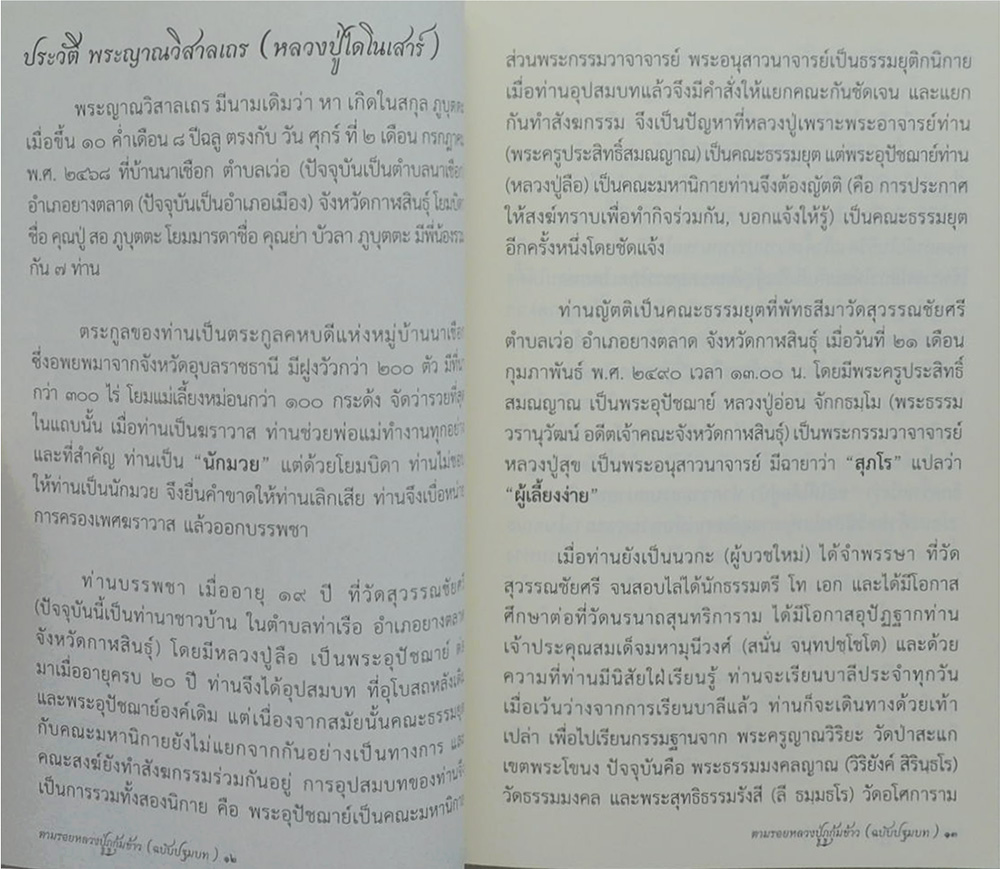 ประวัติ พระญาณวิสาลเถร (หลวงปู่ไดโนเสาร์)
พระญาณวิสาลเถร มีนามเดิมว่า หา เกิดในสกุล ภูบุตตะ
เมื่อขึ้น ๑๐ ค่ำเดือน ๘ ปีฉลู ตรงกับ วัน ศุกร์ ที่ ๒ เดือน กรกฎาคม
พ.ศ. ๒๔๖๘ ที่บ้านนาเชือก ตำบลเว่อ (ปัจจุบันเป็นตำบลนาเชือก
อำเภอยางตลาด (ปัจจุบันเป็นอำเภอเมือง) จังหวัดกาฬสินธุ์ โยมบิดา
ชื่อ คุณปู่ สอ ภูบุตตะ โยมมารดาชื่อ คุณย่า บัวลา ภูบุตตะ มีพี่น้องรวม
กัน ๗ ท่าน
ตระกูลของท่านเป็นตระกูลคหบดีแห่งหมู่บ้านนาเชือก
ซึ่งอพยพมาจากจังหวัดอุบลราชธานี มีฝูงวัวกว่า ๒๐๐ ตัว มีที่นา
กว่า ๓๐๐ ไร่ โยมแม่เลี้ยงหม่อนกว่า ๑๐๐ กระด้ง จัดว่ารวยที่สุด
ในแถบนั้น เมื่อท่านเป็นฆราวาส ท่านช่วยพ่อแม่ทำงานทุกอย่าง
และที่สำคัญ ท่านเป็น “นักมวย” แต่ด้วยโยมบิดา ท่านไม่ชอบ
ให้ท่านเป็นนักมวย จึงยื่นคำขาดให้ท่านเลิกเสีย ท่านจึงเบื่อหน่าย
การครองเพศฆราวาส แล้วออกบรรพชา
ท่านบรรพชา เมื่ออายุ ๑๙ ปี ที่วัดสุวรรณชัยศรี
(ปัจจุบันนี้เป็นท่านาชาวบ้าน ในตำบลท่าเรือ อำเภอยางตลาด
จังหวัดกาฬสินธุ์) โดยมีหลวงปู่ลือ เป็นพระอุปัชฌาย์ ต่อ
มาเมื่ออายุครบ ๒๐ ปี ท่านจึงได้อุปสมบท ที่อุโบสถหลังเดิม
และพระอุปัชฌาย์องค์เดิม แต่เนื่องจากสมัยนั้นคณะธรรมยุต
กับคณะมหานิกายยังไม่แยกจากกันอย่างเป็นทางการ และ
คณะสงฆ์ยังทำสังฆกรรมร่วมกันอยู่ การอุปสมบทของท่านจึง
เป็นการรวมทั้งสองนิกาย คือ พระอุปัชฌาย์เป็นคณะมหานิกาย
ตามรอยหลวงปู่ภูกุ้มข้าว (ฉบับปฐมบท) ๑๒
ส่วนพระกรรมวาจาจารย์ พระอนุสาวนาจารย์เป็นธรรมยุติกนิกาย
เมื่อท่านอุปสมบทแล้วจึงมีคำสั่งให้แยกคณะกันชัดเจน และแยก
กันทำสังฆกรรม จึงเป็นปัญหาที่หลวงปู่เพราะพระอาจารย์ท่าน
(พระครูประสิทธิ์สมณญาณ) เป็นคณะธรรมยุต แต่พระอุปัชฌาย์ท่าน
(หลวงปู่ลือ) เป็นคณะมหานิกายท่านจึงต้องญัตติ (คือ การประกาศ
ให้สงฆ์ทราบเพื่อทำกิจร่วมกัน, บอกแจ้งให้รู้) เป็นคณะธรรมยุต
อีกครั้งหนึ่งโดยชัดแจ้ง
ท่านญัตติเป็นคณะธรรมยุตที่พัทธสีมาวัดสุวรรณชัยศรี
ตำบลเว่อ อำเภอยางตลาด จังหวัดกาฬสินธุ์ เมื่อวันที่ ๒๑ เดือน
กุมภาพันธ์ พ.ศ. ๒๔๙๐ เวลา ๑๓.๐๐ น. โดยมีพระครูประสิทธิ์
สมณญาณ เป็นพระอุปัชฌาย์ หลวงปู่อ่อน จักกธมฺโม (พระธรรม
วรานุวัฒน์ อดีตเจ้าคณะจังหวัดกาฬสินธุ์) เป็นพระกรรมวาจาจารย์
หลวงปู่สุข เป็นพระอนุสาวนาจารย์ มีฉายาว่า “สุภโร” แปลว่า
“ผู้เลี้ยงง่าย”
เมื่อท่านยังเป็นนวกะ (ผู้บวชใหม่) ได้จำพรรษา ที่วัด
สุวรรณชัยศรี จนสอบไล่ได้นักธรรมตรี โท เอก และได้มีโอกาส
ศึกษาต่อที่วัดนรนาถสุนทริการาม ได้มีโอกาสอุปัฏฐากท่าน
เจ้าประคุณสมเด็จมหามุนีวงศ์ (สนั่น จนฺทปชฺโชโต) และด้วย
ความที่ท่านมีนิสัยใฝ่เรียนรู้ ท่านจะเรียนบาลีประจำทุกวัน
เมื่อเว้นว่างจากการเรียนบาลีแล้ว ท่านก็จะเดินทางด้วยเท้า
เปล่า เพื่อไปเรียนกรรมฐานจาก พระครูญาณวิริยะ วัดป่าสะแก
เขตพระโขนง ปัจจุบันคือ พระธรรมมงคลญาณ (วิริยังค์ สิรินฺธโร)
วัดธรรมมงคล และพระสุทธิธรรมรังสี (ลี ธมฺมธโร) วัดอโศการาม
ตามรอยหลวงปู่ภูกุ้มข้าว (ฉบับปฐมบท) ๑๓